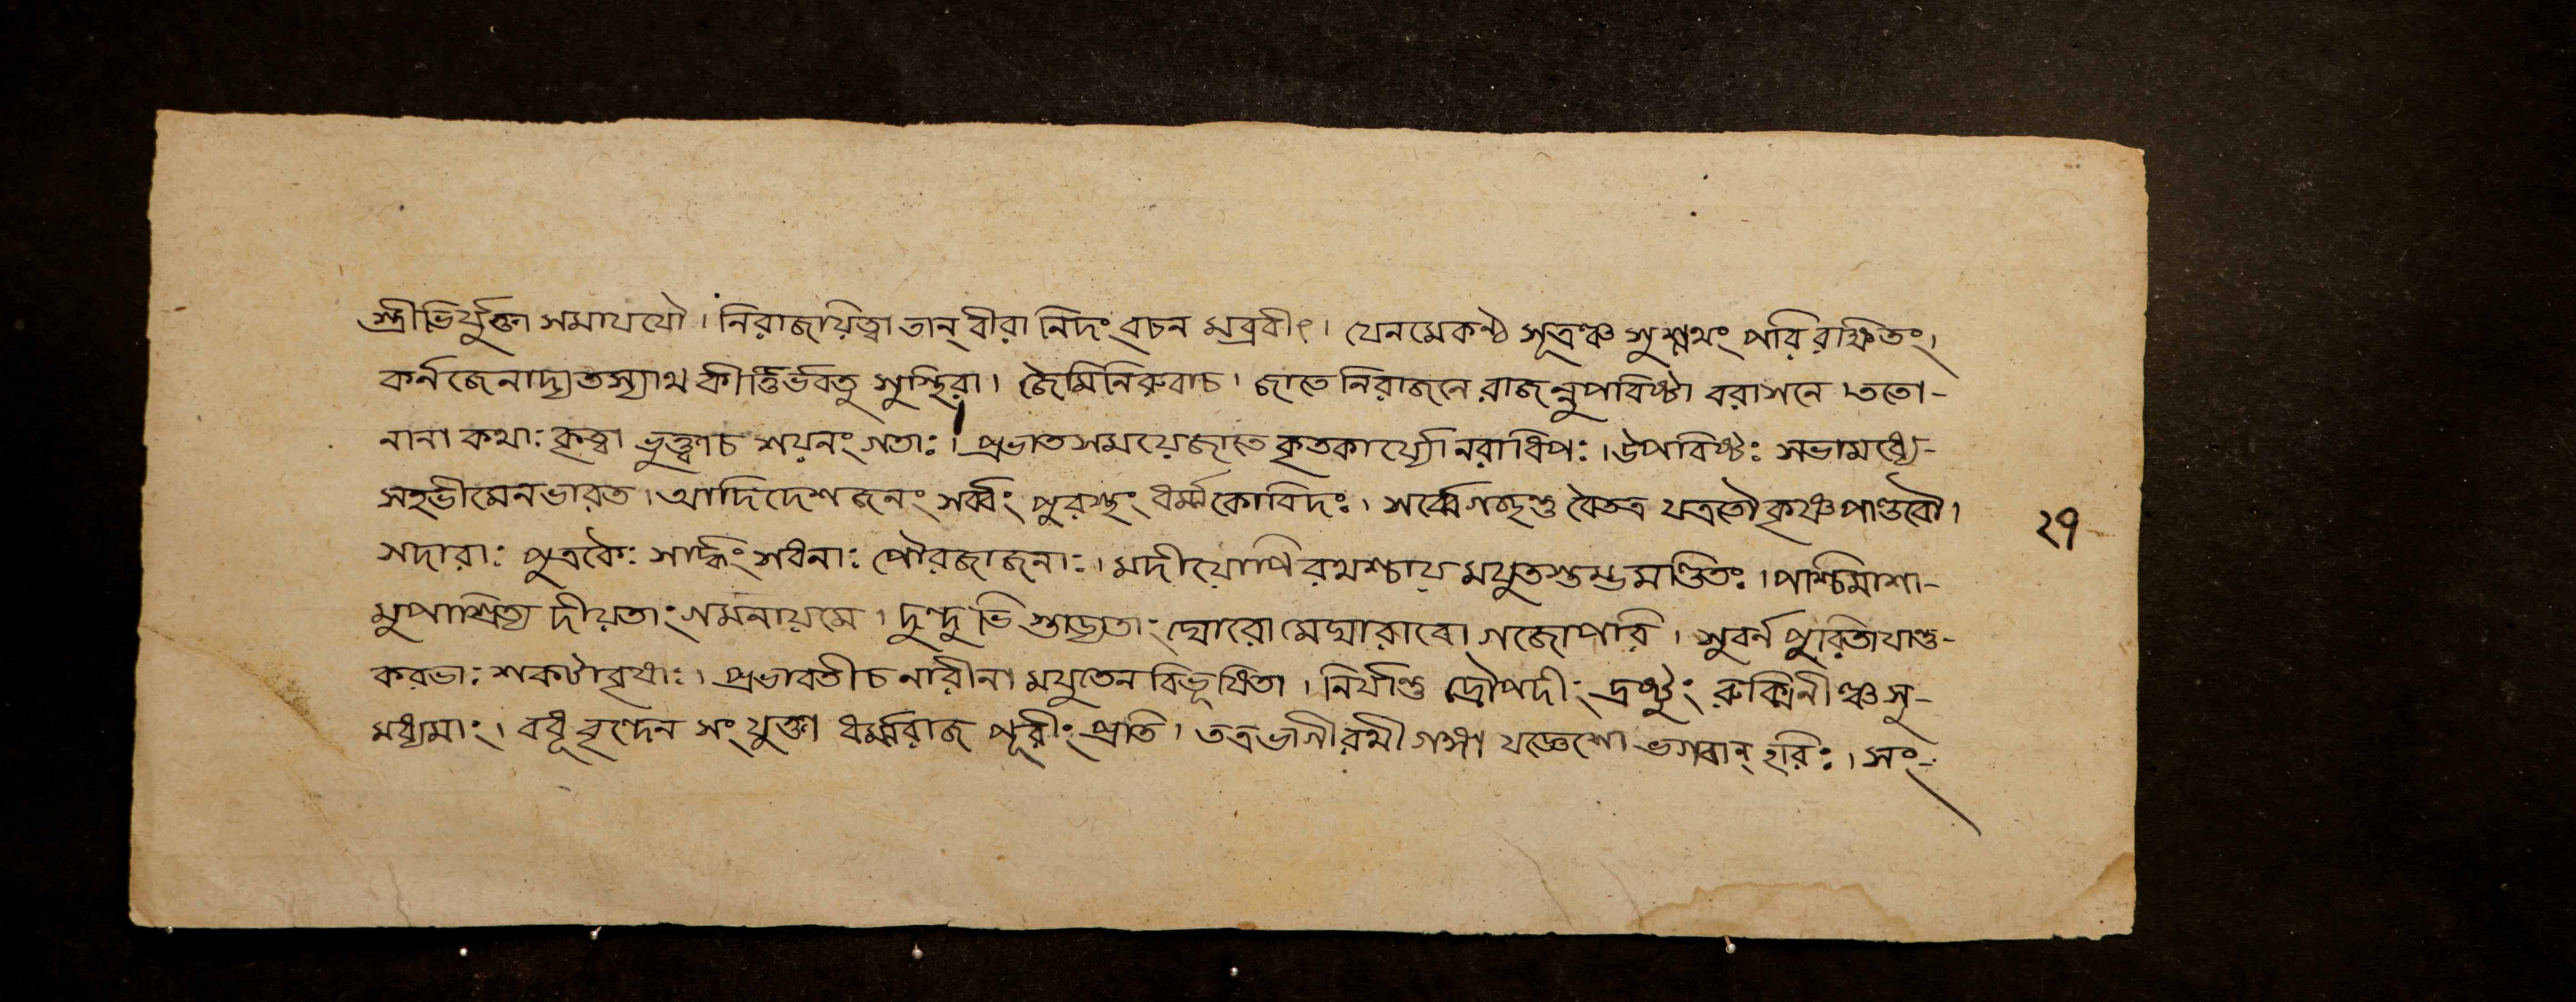 স্ত্রীভির্যুক্তা সমাযযৌ। নিরাজায়িত্বা তান্ বীরা নিদং বচন মব্রবীৎ। যেনমেকণ্ঠ সূত্রঞ্চ সুশ্লথং পরি রক্ষিতং।
কর্নজেনাদ্য তস্যাথ কীর্ত্তির্ভবতু সুস্থিরা। জৈমিনিরুবাচ। জাতে নিরাজনে রাজন্নুপবিষ্টা বরাসনে। ততো-
নানা কথাঃ কৃত্বা ভুক্ত্বাচ শয়নং গতাঃ। প্রভাত সময়েজাতে কৃতকার্য্যোনরাধিপঃ। উপবিষ্টঃ সভামধ্যে-
সহভীমেনভারত। আদিদেশজনং সর্ব্বং পুরস্থং ধর্ম্মকোবিদঃ। সর্ব্বেগচ্ছন্তু বৈতত্র যত্রতৌকৃষ্ণপাণ্ডবৌ।
সদারাঃ পুত্রকৈঃ সার্দ্ধং সধনাঃ পৌরজাজনাঃ। মদীয়োপি রথশ্চায় মযুতস্তম্ভমণ্ডিতঃ। পশ্চিমাশা-
মুপাশ্রিত্য দীয়তাং গমনায়মে। দুন্দুভি স্তাড্যতাং ঘোরো মেঘারাবো গজোপরি। সুবর্ন পুরিতাযান্তু-
করভাঃ শকটাবৃষাঃ। প্রভাবতীচ নারীনা মযুতেন বিভূষিতা। নির্যাতু দ্রৌপদীং দ্রষ্টুং রুক্মিনীঞ্চ সু-
মধ্যমাং। বধূ বৃন্দেন সংযুক্তা ধর্ম্মরাজ পূরীং প্রতি। তত্রভাগীরথী গঙ্গা যজ্ঞেশো ভগবান্ হরিঃ। সং-
২৭